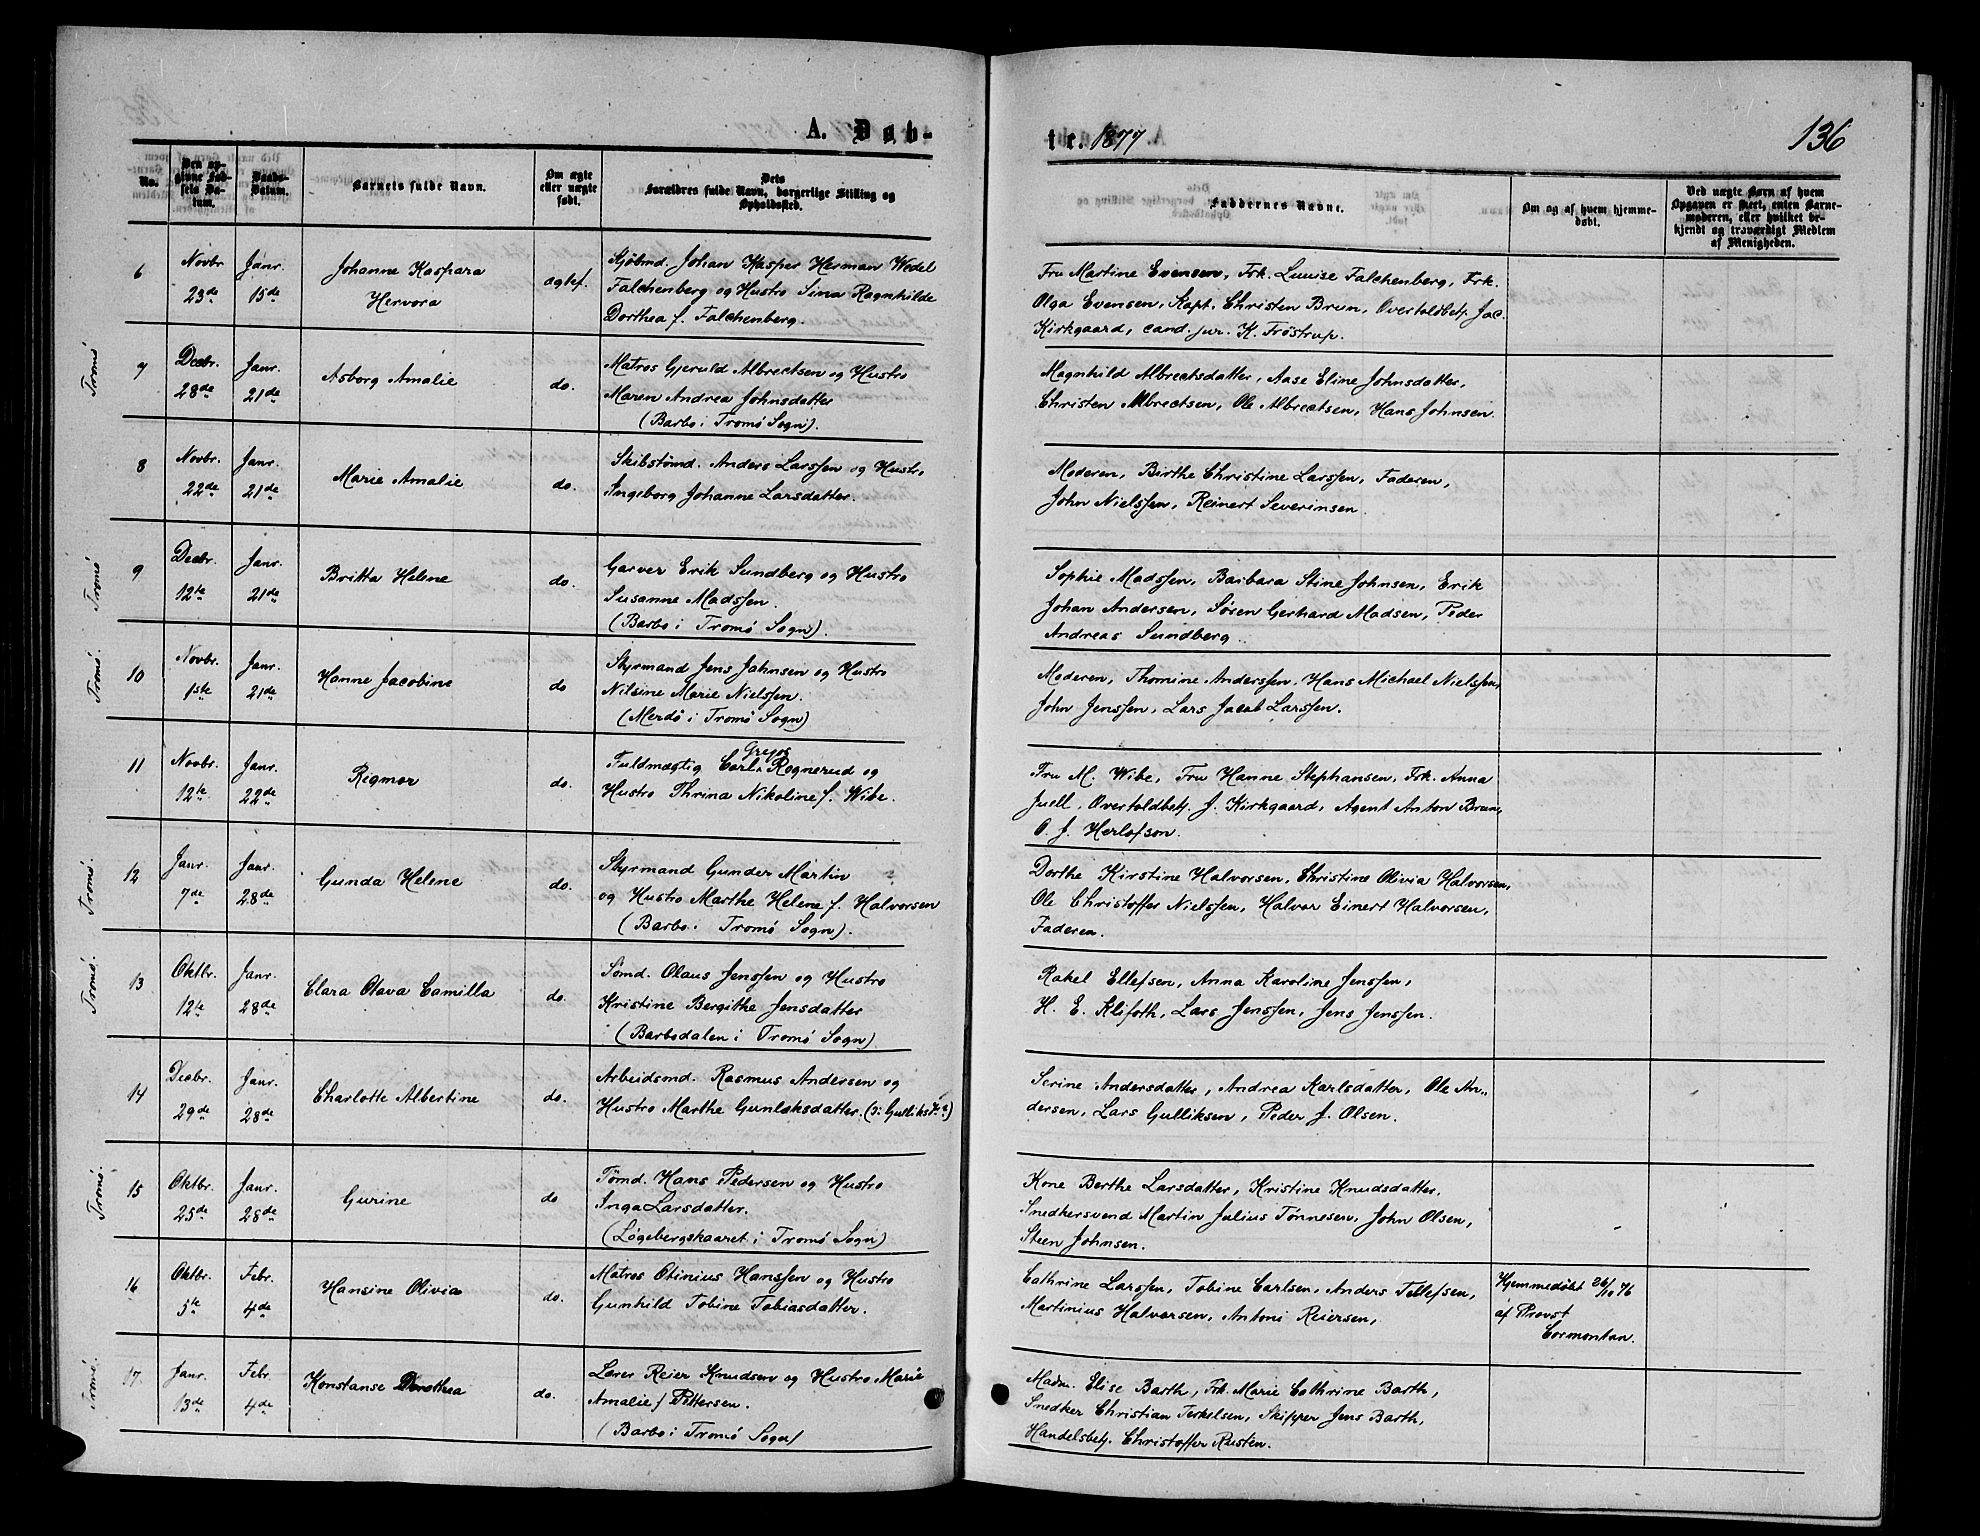 A. Døb-
te. 1877
136
No.
Den op-
givne Fød-
sels Da-
tum.
Daabs-
Datum.
Barnets fulde Navn.
Om ægte
eller uægte
født.
Dets
Forældres fulde Navn, borgerlige Stilling og
Opholdssted.
Faddernes Navne.
Om og af hvem hjemme-
døbt.
Ved uægte Børn af hvem
Opgaven er skeet, enten Barne-
moderen, eller hvilket be-
kjendt og troværdigt Medlem
af Menigheden.
6
Novbr
23de
Janr.
15de
Johanne Kaspara
Hervora
ægtef.
Kjøbmd. Johan Kasper Herman Wedel
Falchenberg og Hustro Sina Ragnhilde
Dorthea f. Falchenberg.
Fru Martine Evensen, Frk. Louise Falchenberg, Frk.
Olga Evensen, Kapt. Christen Brun, Overtoldbetj. Jac.
Kirkgaard, cand. jur. K. Frøstrup.
Tromö
7
Decbr.
28de
Janr.
21de
Asborg Amalie
do.
Matros Gjeruld Albrectsen og Hustro
Maren Andrea Johnsdatter
(Barbo i Tromö Sogn).
Magnhild Albrectsdatter, Aase Eline Johnsdatter,
Christen Albrectsen, Ole Albrectsen, Hans Johnsen.
8
Novbr.
22de
Janr.
21de
Marie Amalie
do.
Skibstømd. Anders Larssen og Hustro
Ingeborg Johanne Larsdatter.
Moderen, Birthe Christine Larssen, Faderen,
John Nielssen, Reinert Severinsen
Tromö
9
Decbr.
12te
Janr.
21de
Britta Helene
do.
Garver Erik Sundberg og Hustro
Susanne Madssen.
(Barbo i Tromö Sogn).
Sophie Madssen, Barbara Stine Johnsen, Erik
Johan Andersen, Søren Gerhard Madsen, Peder
Andreas Sundberg.
Tromö.
10
Novbr.
1ste
Janr.
21de
Hanne Jacobine
do
Styrmand Jens Jahnsen og Hustro
Nilsine Marie Nielssen.
(Merdö i Tromö Sogn)
Moderen, Thomine Anderssen, Hans Michael Nielssen,
John Jenssen, Lars Jacob Larssen.
11
Novbr.
12te
Janr.
22de
Rigmor
do.
Gregos
Fuldmægtig Carl Rognerud og
Hustro Thrina Nikoline f. Wibe.
Fru M. Wibe, Fru Hanne Stephansen, Frk. Anna
Juell, Overtoldbetj. J. Kirkgaard, Agent Anton Brun,
O. J. Herlofson.
Tromö.
12
Janr.
7de
Janr.
28de
Gunda Helene
do.
Styrmand Gunder Martin
og Hustro Marthe Helene f. Halvorsen
(Barbo i Tromö Sogn).
Dorthe Kirstine Halvorsen, Christine Olivia Halvorsen,
Ole Christoffer Nielssen, Halvor Einert Halvorsen,
Faderen.
Tromö.
13
Oktbr.
12te
Janr.
28de
Clara Olava Camilla
do.
Sömd. Olaus Jenssen og Hustro
Kristine Bergithe Jensdatter
(Barbodalen i Tromö Sogn)
Rakel Ellefsen, Anna Karoline Jenssen,
H. E. Klifoth, Lars Jenssen, Jens Jenssen.
14
Decbr.
29de
Janr.
28de
Charlotte Albertine
do.
Arbeidsmd. Rasmus Andersen og
Hustro Marthe Gunlaksdatter.
Serine Andersdatter, Andrea Karlsdatter, Ole An-
dersen, Lars Gulliksen, Peder J. Olsen.
Tromö.
15
Oktbr.
25de
Janr.
28de
Gurine
do
Tömd. Hans Pedersen og Hustro
Inga Larsdatter.
(Løgebergskaaret i Tromö Sogn)
Kone Berthe Larsdatter, Kristine Knudsdatter,
Snedkersvend Martin Julius Tönnesen, John Olsen,
Steen Johnsen.
16
Oktbr.
5te
Febr.
4de
Hansine Olivia
do.
Matros Otinius Hanssen og Hustro
Gunhild Tobine Tobiasdatter.
Cathrine Larssen, Tobine Carlsen, Anders Tellefsen,
Martinius Halvorsen, Antoni Reiersen,
Hjemmedøbt 26/10 76
af Provst
Cormontan.
Tromö.
17.
Janr.
13de
Febr.
4de
Konstanse Dorothea
do.
Lærer Reier Knudsen og Hustro Marie
Amalie f Pettersen.
(Barbo i Tromö Sogn)
Madm. Elise Barth, Frk. Marie Cathrine Barth,
Snedker Christian Terkelsen, Skipper Jens Barth,
Handelsbetj. Christoffer Rusten.